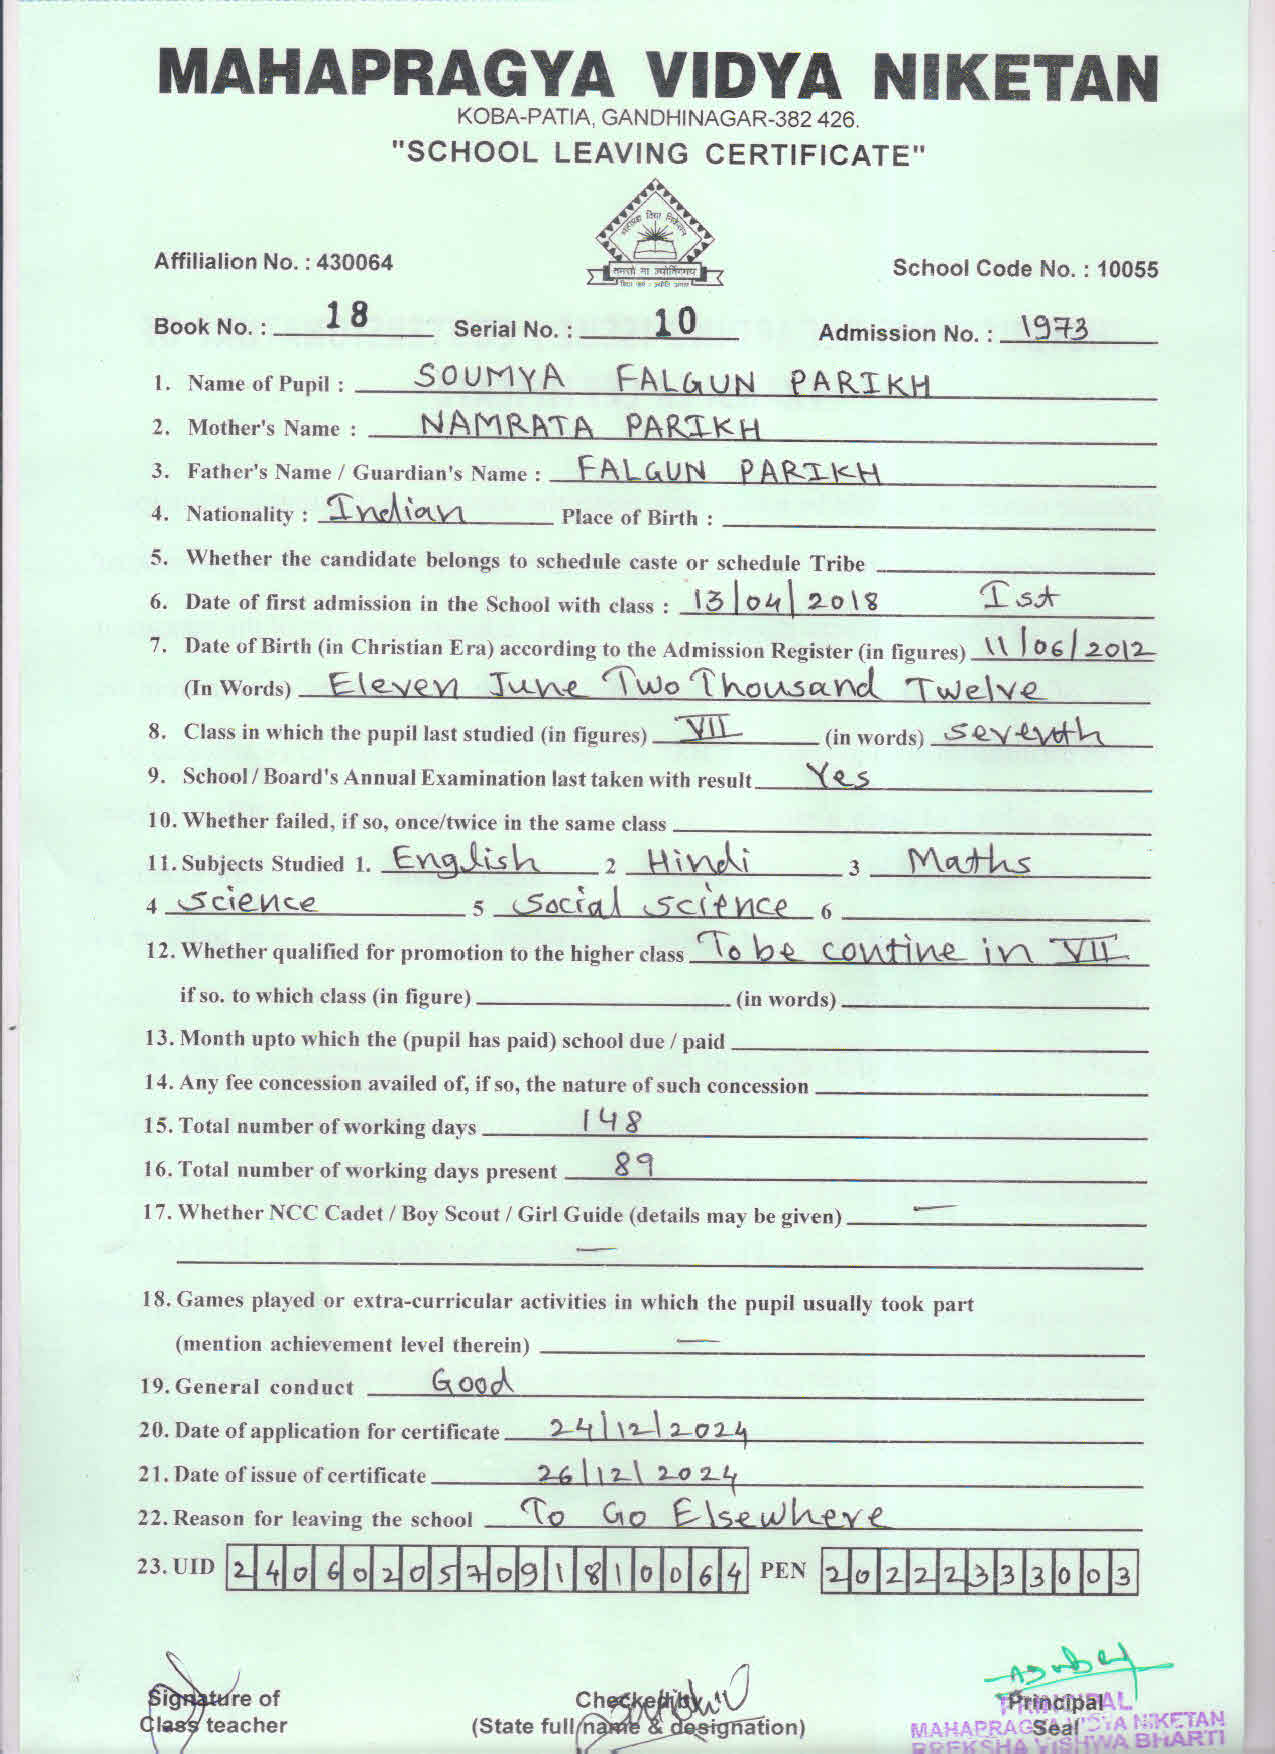 MAHAPRAGYA VIDYA NIKETAN
KOBA-PATIA, GANDHINAGAR-382 426.
"SCHOOL LEAVING CERTIFICATE"
महाप्रज्ञ विद्या निकेतन
तमसो मा ज्योतिर्गमय
Affilialion No. : 430064
School Code No. : 10055
Book No. : 18 Serial No. : 10 Admission No. : 1973
1. Name of Pupil : SOUMYA FALGUN PARIKH
2. Mother's Name : NAMRATA PARIKH
3. Father's Name / Guardian's Name : FALGUN PARIKH
4. Nationality : Indian Place of Birth :
5. Whether the candidate belongs to schedule caste or schedule Tribe
6. Date of first admission in the School with class : 13/04/2018 Ist
7. Date of Birth (in Christian Era) according to the Admission Register (in figures) 11/06/2012
(In Words) Eleven June Two Thousand Twelve
8. Class in which the pupil last studied (in figures) VII (in words) seventh
9. School / Board's Annual Examination last taken with result Yes
10. Whether failed, if so, once/twice in the same class
11. Subjects Studied 1. English 2 Hindi 3 Maths
4 science 5 social science 6
12. Whether qualified for promotion to the higher class To be contine in VII
if so. to which class (in figure) (in words)
13. Month upto which the (pupil has paid) school due / paid
14. Any fee concession availed of, if so, the nature of such concession
15. Total number of working days 148
16. Total number of working days present 89
17. Whether NCC Cadet / Boy Scout / Girl Guide (details may be given) —
—
18. Games played or extra-curricular activities in which the pupil usually took part
(mention achievement level therein) —
19. General conduct Good
20. Date of application for certificate 24/12/2024
21. Date of issue of certificate 26/12/2024
22. Reason for leaving the school To Go Elsewhere
23. UID 240602057091810064 PEN 20222333003
Signature of Checked by Principal
Class teacher (State full name & designation) Seal
PRINCIPAL
MAHAPRAGYA VIDYA NIKETAN
PREKSHA VISHWA BHARTI